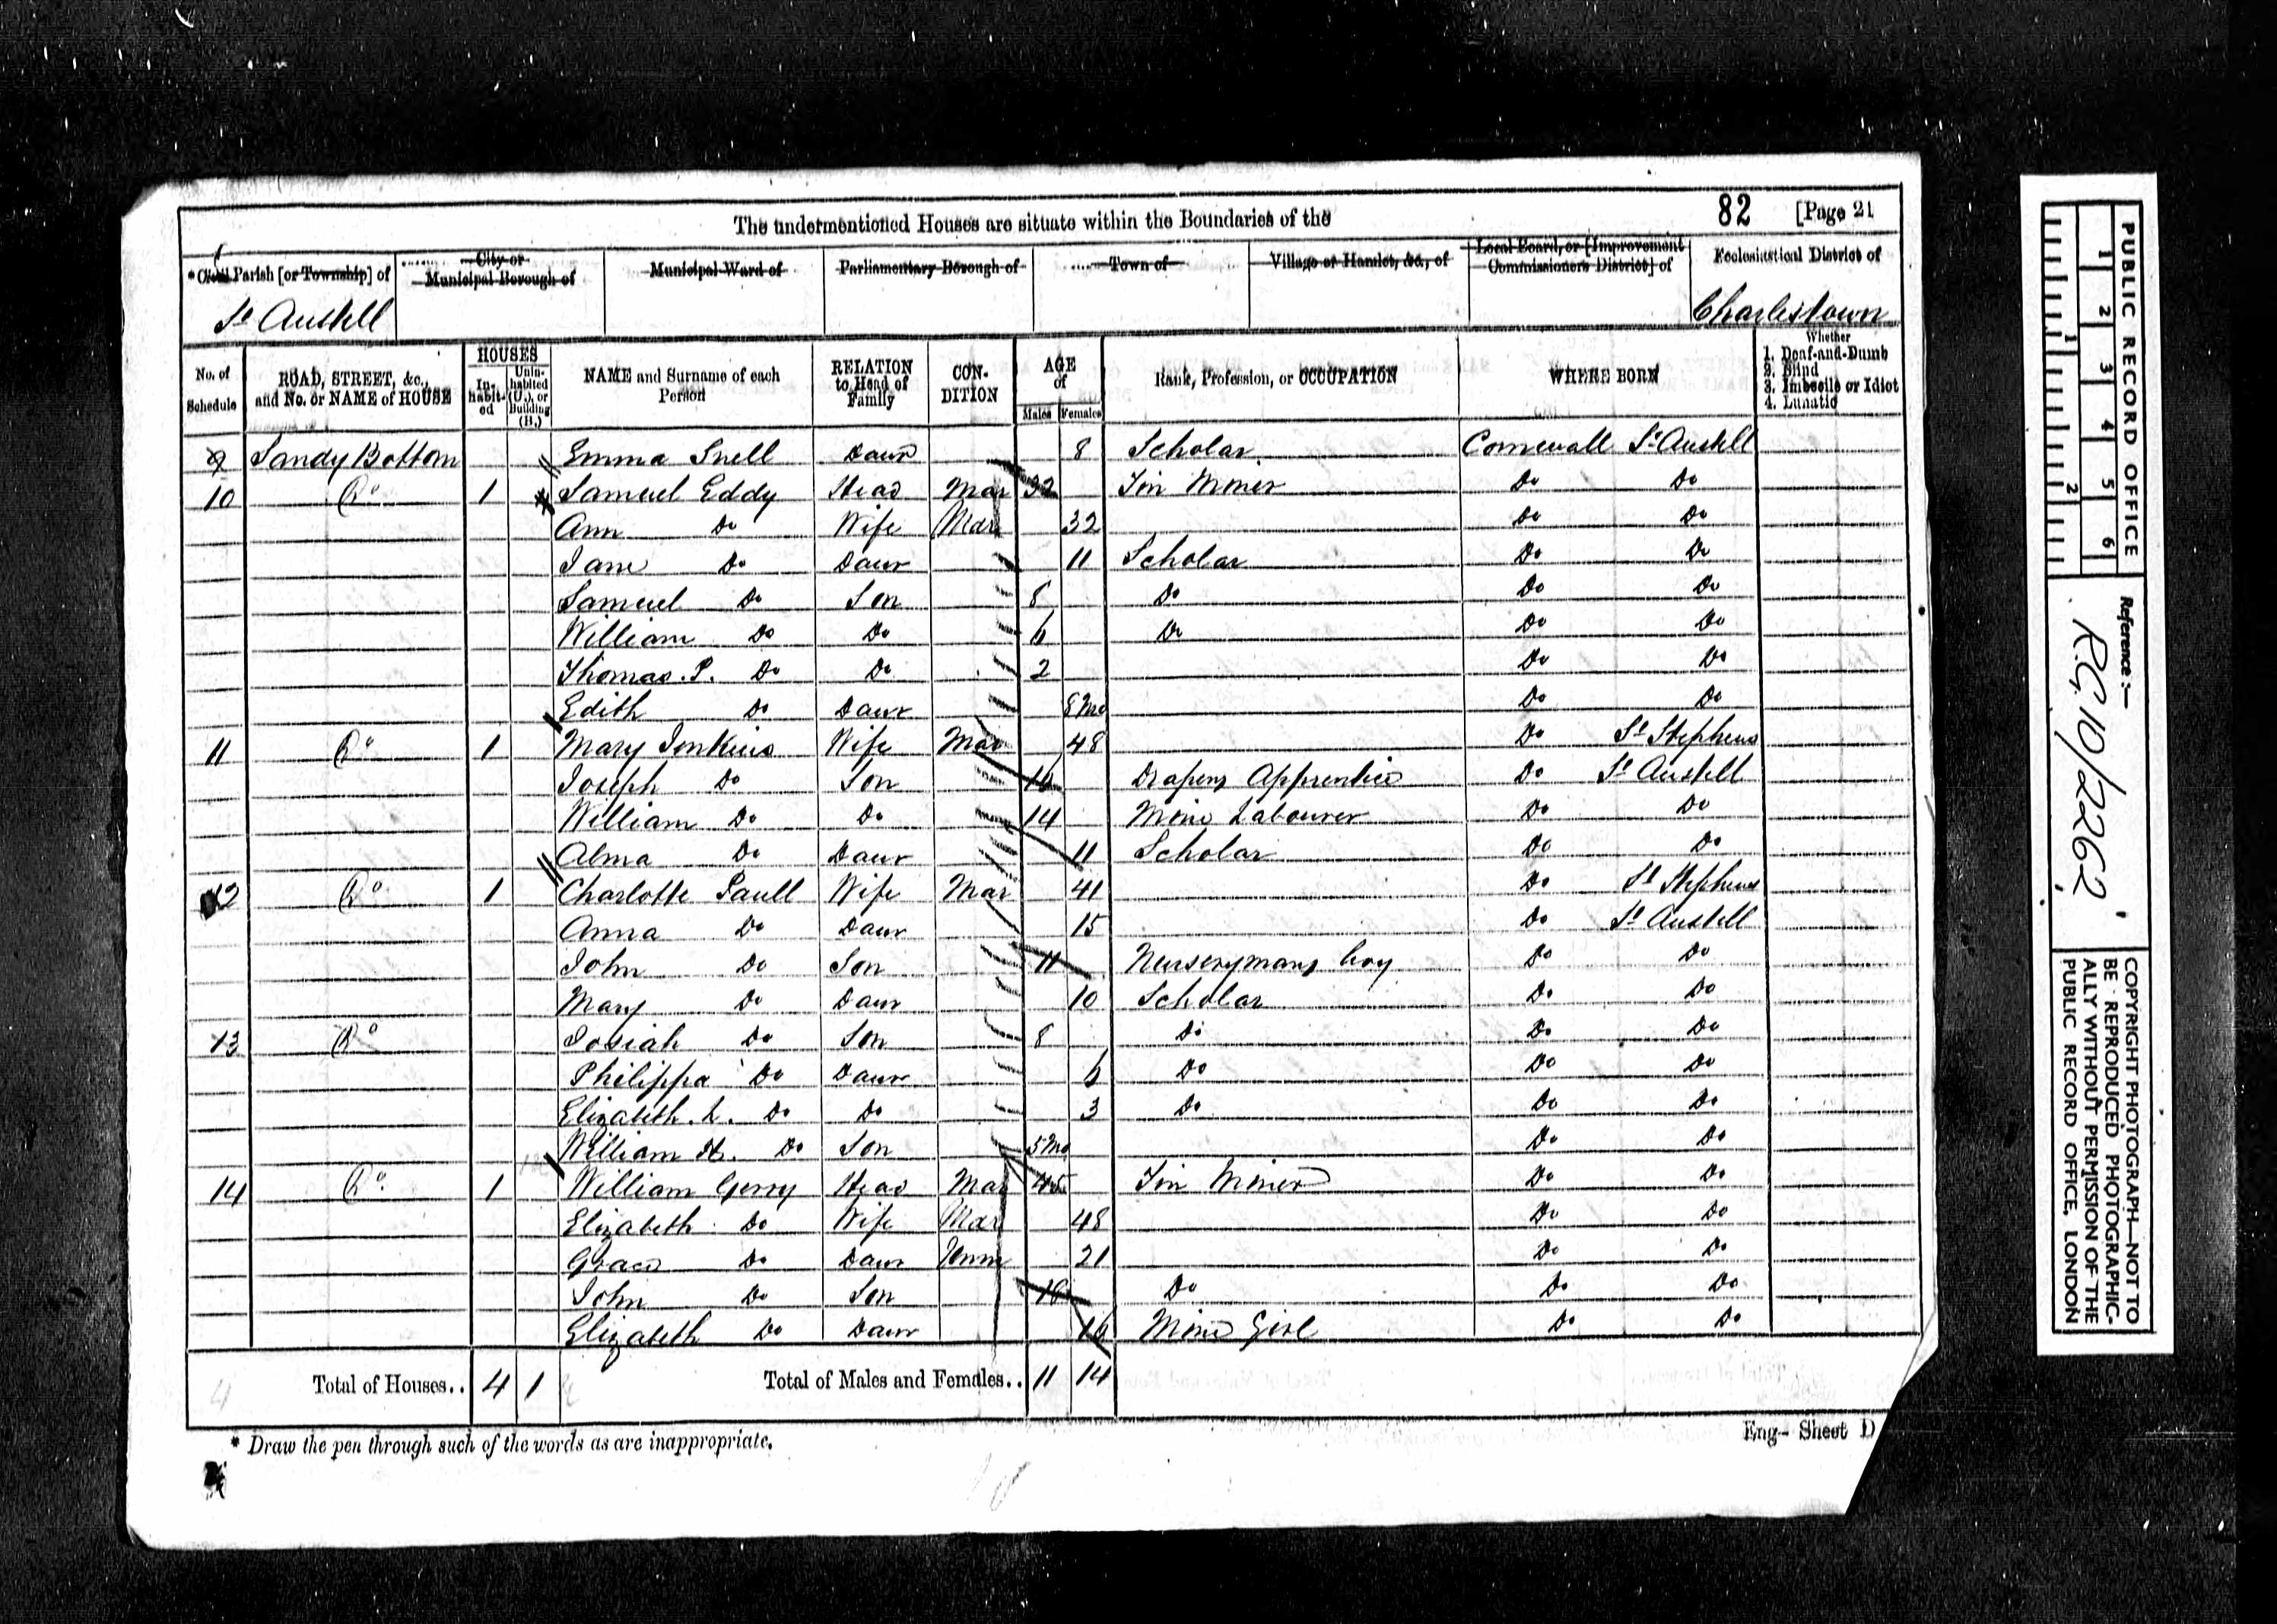 The undermentioned Houses are situate within the Boundaries of the
82 [Page 21
*Civil Parish [or Township] of
City or Municipal Borough of
Municipal Ward of
Parliamentary Borough of
Town of
Village or Hamlet, &c., of
Local Board, or [Improvement Commissioners District] of
Ecclesiastical District of
St Austell
Charlestown
No. of Schedule
ROAD, STREET, &c., and No. or NAME of HOUSE
HOUSES
In-habit-ed
Unin-habited (U.), or Building (B.)
NAME and Surname of each Person
RELATION to Head of Family
CON-DITION
AGE of
Males
Females
Rank, Profession, or OCCUPATION
WHERE BORN
Whether
1. Deaf-and-Dumb
2. Blind
3. Imbecile or Idiot
4. Lunatic
9 Sandy Bottom Emma Snell Daur 8 Scholar Cornwall St Austell
10 Do 1 Samuel Eddy Head Mar 32 Tin Miner Do Do
Ann Do Wife Mar 32 Do Do
Jane Do Daur 11 Scholar Do Do
Samuel Do Son 8 Do Do Do
William Do Do 6 Do Do Do
Thomas. P. Do Do 2 Do Do
Edith Do Daur 8 Mo Do Do
11 Do 1 Mary Jenkins Wife Mar 48 Do St Stephens
Joseph Do Son 16 Drapers Apprentice Do St Austell
William Do Do 14 Mine Labourer Do Do
Alma Do Daur 11 Scholar Do Do
12 Do 1 Charlotte Paull Wife Mar 41 Do St Stephens
Anna Do Daur 15 Do St Austell
John Do Son 11 Nurserymans boy Do Do
Mary Do Daur 10 Scholar Do Do
13 Do Josiah Do Son 8 Do Do Do
Philippa Do Daur 6 Do Do Do
Elizabeth. Do Do 3 Do Do Do
William H. Do Son 5 Mo Do Do
14 Do 1 William Gerry Head Mar 45 Tin Miner Do Do
Elizabeth Do Wife Mar 48 Do Do
Grace Do Daur Unm 21 Do Do
John Do Son 18 Do Do Do
Elizabeth Do Daur 16 Mine Girl Do Do
Total of Houses.. 4 1
Total of Males and Females.. 11 14
* Draw the pen through such of the words as are inappropriate.
Eng- Sheet D
PUBLIC RECORD OFFICE
1 2 3 4 5 6
1 2
Reference :-
R.G. 10/2262
COPYRIGHT PHOTOGRAPH—NOT TO
BE REPRODUCED PHOTOGRAPHIC-
ALLY WITHOUT PERMISSION OF THE
PUBLIC RECORD OFFICE, LONDON